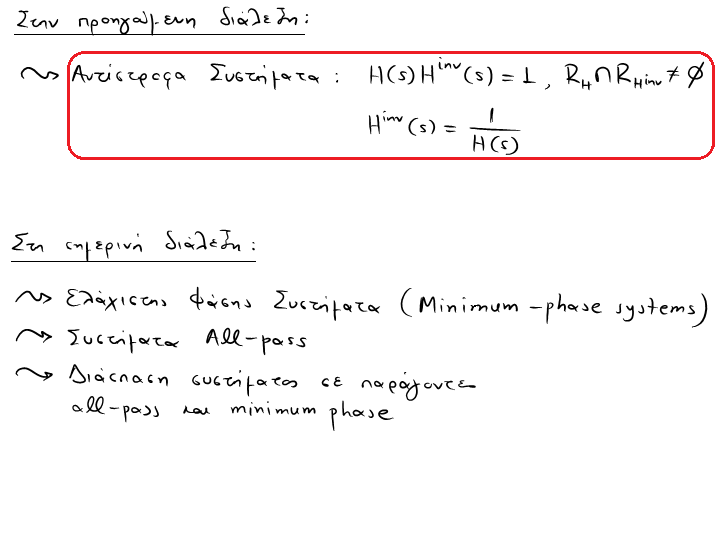 Στην προηγούμενη διάλεξη:
Αντίστροφα Συστήματα: H(s)H^{inv}(s) = 1, R_H ∩ R_{Hinv} ≠ ∅
H^{inv}(s) = 1/H(s)
Στη σημερινή διάλεξη:
Ελάχιστης Φάσης Συστήματα (Minimum-phase systems)
Συστήματα All-pass
Διάσπαση συστήματος σε παράγοντες
all-pass και minimum phase